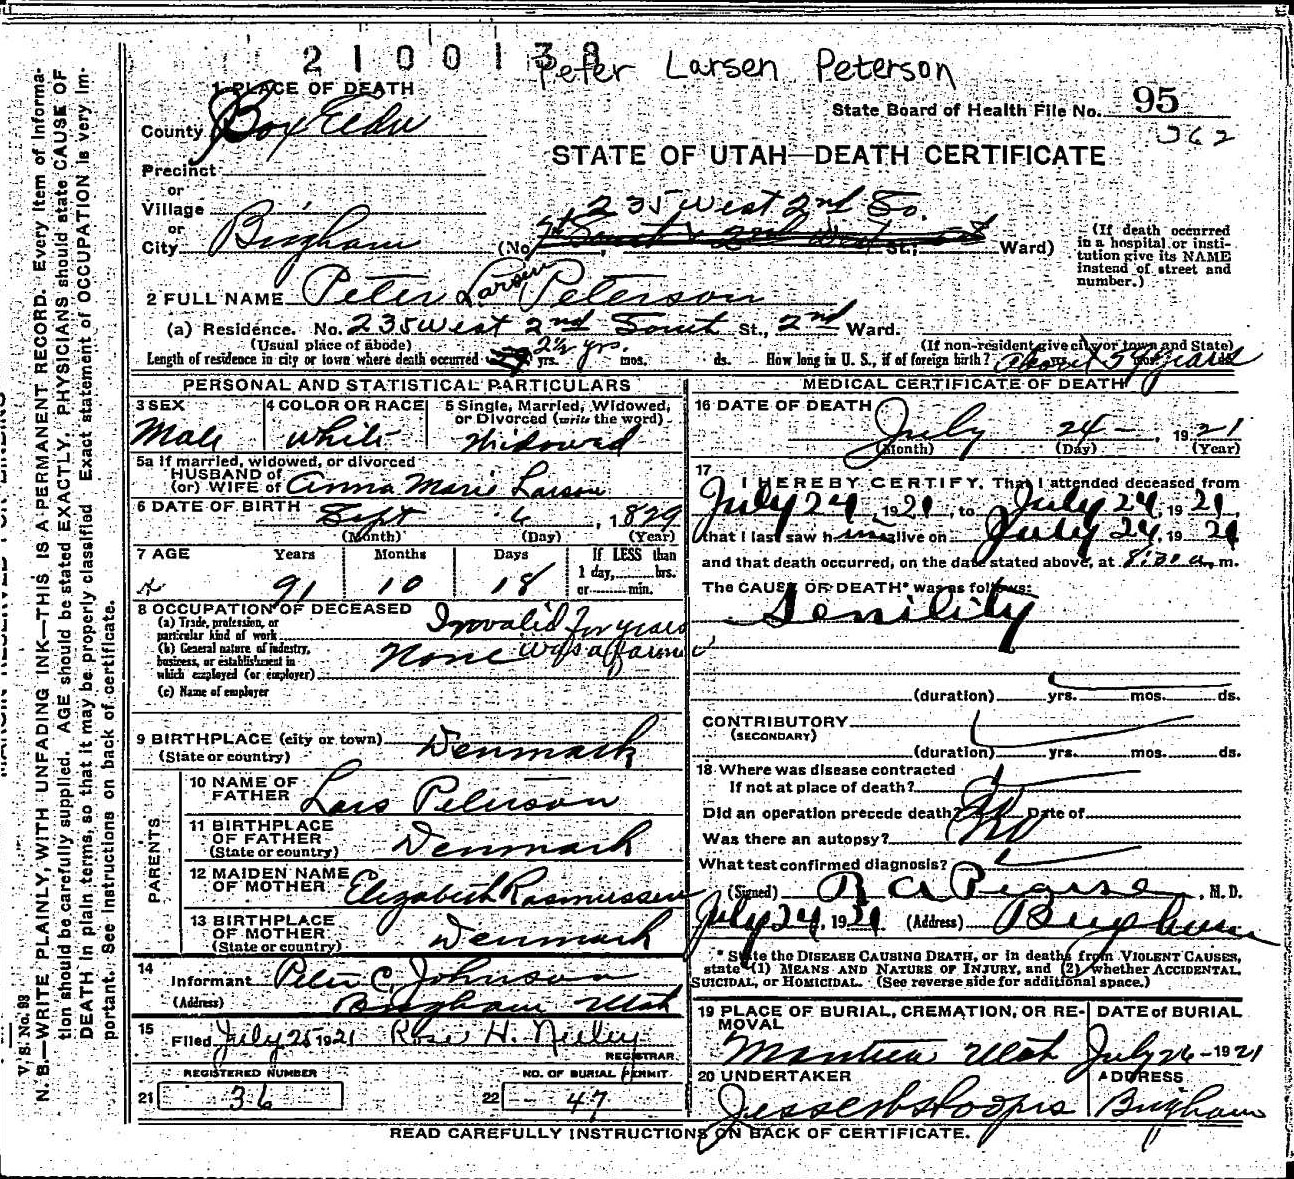 2100138
Peter Larsen Peterson
1 PLACE OF DEATH
State Board of Health File No. 95
362
County Box Elder
STATE OF UTAH—DEATH CERTIFICATE
Precinct
or
Village
or
City Brigham
235 West 2nd So.
(No. South & 2nd West St.; Ward)
(If death occurred
in a hospital or insti-
tution give its NAME
instend of street and
number.)
2 FULL NAME Peter Larsen Peterson
(a) Residence. No. 235 West 2nd South St., 2nd Ward.
(Usual place of abode)
(If non-resident give city or town and State)
Length of residence in city or town where death occurred 2½ yrs. yrs. mos. ds. How long in U. S., if of foreign birth? about 59 years
PERSONAL AND STATISTICAL PARTICULARS
3 SEX
Male
4 COLOR OR RACE
White
5 Single, Married, Widowed,
or Divorced (write the word)
Widowed
5a If married, widowed, or divorced
HUSBAND of
(or) WIFE of Anna Marie Larson
6 DATE OF BIRTH Sept 6, 1829
(Month) (Day) (Year)
7 AGE Years Months Days If LESS than
1 day, hrs.
91 10 18 or min.
8 OCCUPATION OF DECEASED
(a) Trade, profession, or
particular kind of work Invalid for years
(b) General nature of industry,
business, or establishment in
which employed (or employer) None was a farmer
(c) Name of employer
9 BIRTHPLACE (city or town) Denmark
(State or country)
PARENTS
10 NAME OF
FATHER Lars Peterson
11 BIRTHPLACE
OF FATHER Denmark
(State or country)
12 MAIDEN NAME
OF MOTHER Elizabeth Rasmussen
13 BIRTHPLACE
OF MOTHER Denmark
(State or country)
14
Informant Peter C. Johnson
(Address) Brigham Utah
15
Filed July 25 1921 Rose H. Neeley
REGISTRAR
REGISTERED NUMBER
21 36
NO. OF BURIAL PERMIT
22 47
MEDICAL CERTIFICATE OF DEATH
16 DATE OF DEATH
July 24, 1921
(Month) (Day) (Year)
17
I HEREBY CERTIFY, That I attended deceased from
July 24, 1921, to July 24, 1921,
that I last saw him alive on July 24, 1921
and that death occurred, on the date stated above, at 8:30 a. m.
The CAUSE OF DEATH* was as follows:
Senility
(duration) yrs. mos. ds.
CONTRIBUTORY
(SECONDARY)
(duration) yrs. mos. ds.
18 Where was disease contracted
If not at place of death?
Did an operation precede death? No Date of
Was there an autopsy?
What test confirmed diagnosis?
(Signed) R A Pearse, M. D.
July 24, 1921 (Address) Brigham
* State the DISEASE CAUSING DEATH, or in deaths from VIOLENT CAUSES,
state (1) MEANS AND NATURE OF INJURY, and (2) whether ACCIDENTAL,
SUICIDAL, or HOMICIDAL. (See reverse side for additional space.)
19 PLACE OF BURIAL, CREMATION, OR RE-
MOVAL
Mantua Utah
DATE of BURIAL
July 26-1921
20 UNDERTAKER
ADDRESS
Brigham
READ CAREFULLY INSTRUCTIONS ON BACK OF CERTIFICATE.
V. S. No. 93
N. B.—WRITE PLAINLY, WITH UNFADING INK—THIS IS A PERMANENT RECORD. Every item of informa-
tion should be carefully supplied. AGE should be stated EXACTLY. PHYSICIANS should state CAUSE OF
DEATH in plain terms, so that it may be properly classified. Exact statement of OCCUPATION is very im-
portant. See instructions on back of certificate.